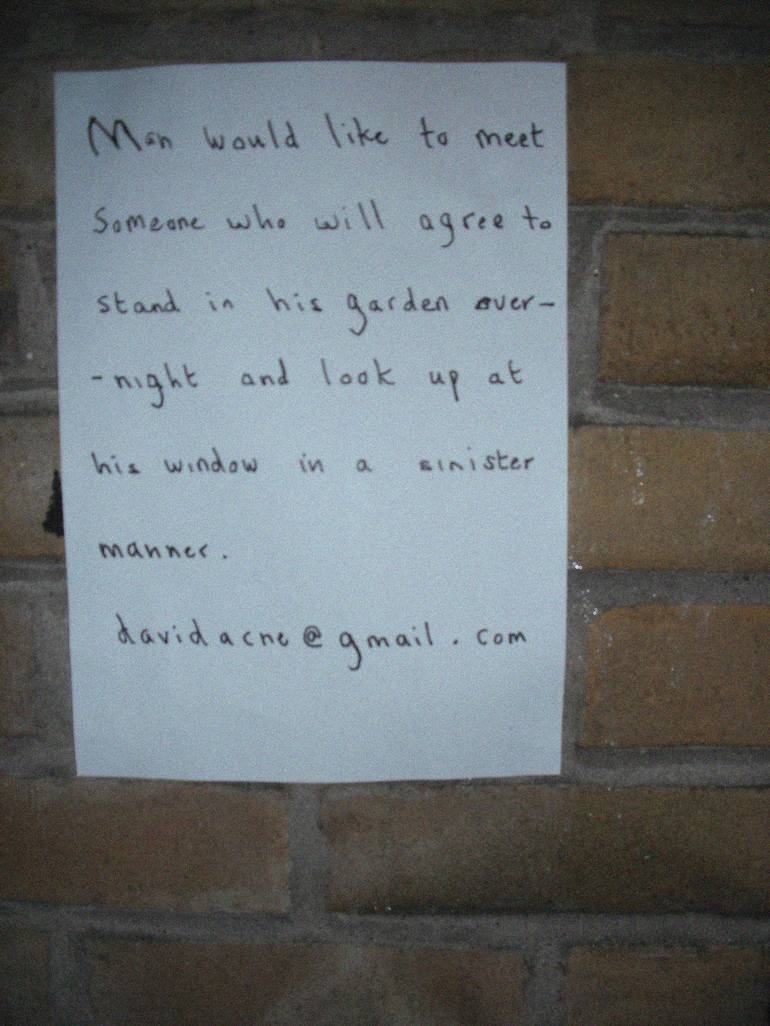 Man would like to meet
Someone who will agree to
stand in his garden over-
-night and look up at
his window in a sinister
manner.
davidacne@gmail.com